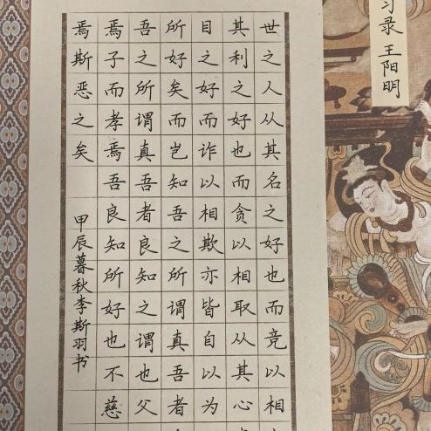 习录 王阳明
世之人从其名之好也而竞以相
其利之好也而贪以相取从其心
目之好而诈以相欺亦皆自以为
所好矣而岂知吾之所谓真吾者
吾之所谓真吾者良知之谓也父
焉子而孝焉吾良知所好也不慈
焉斯恶之矣
甲辰暮秋李斯羽书